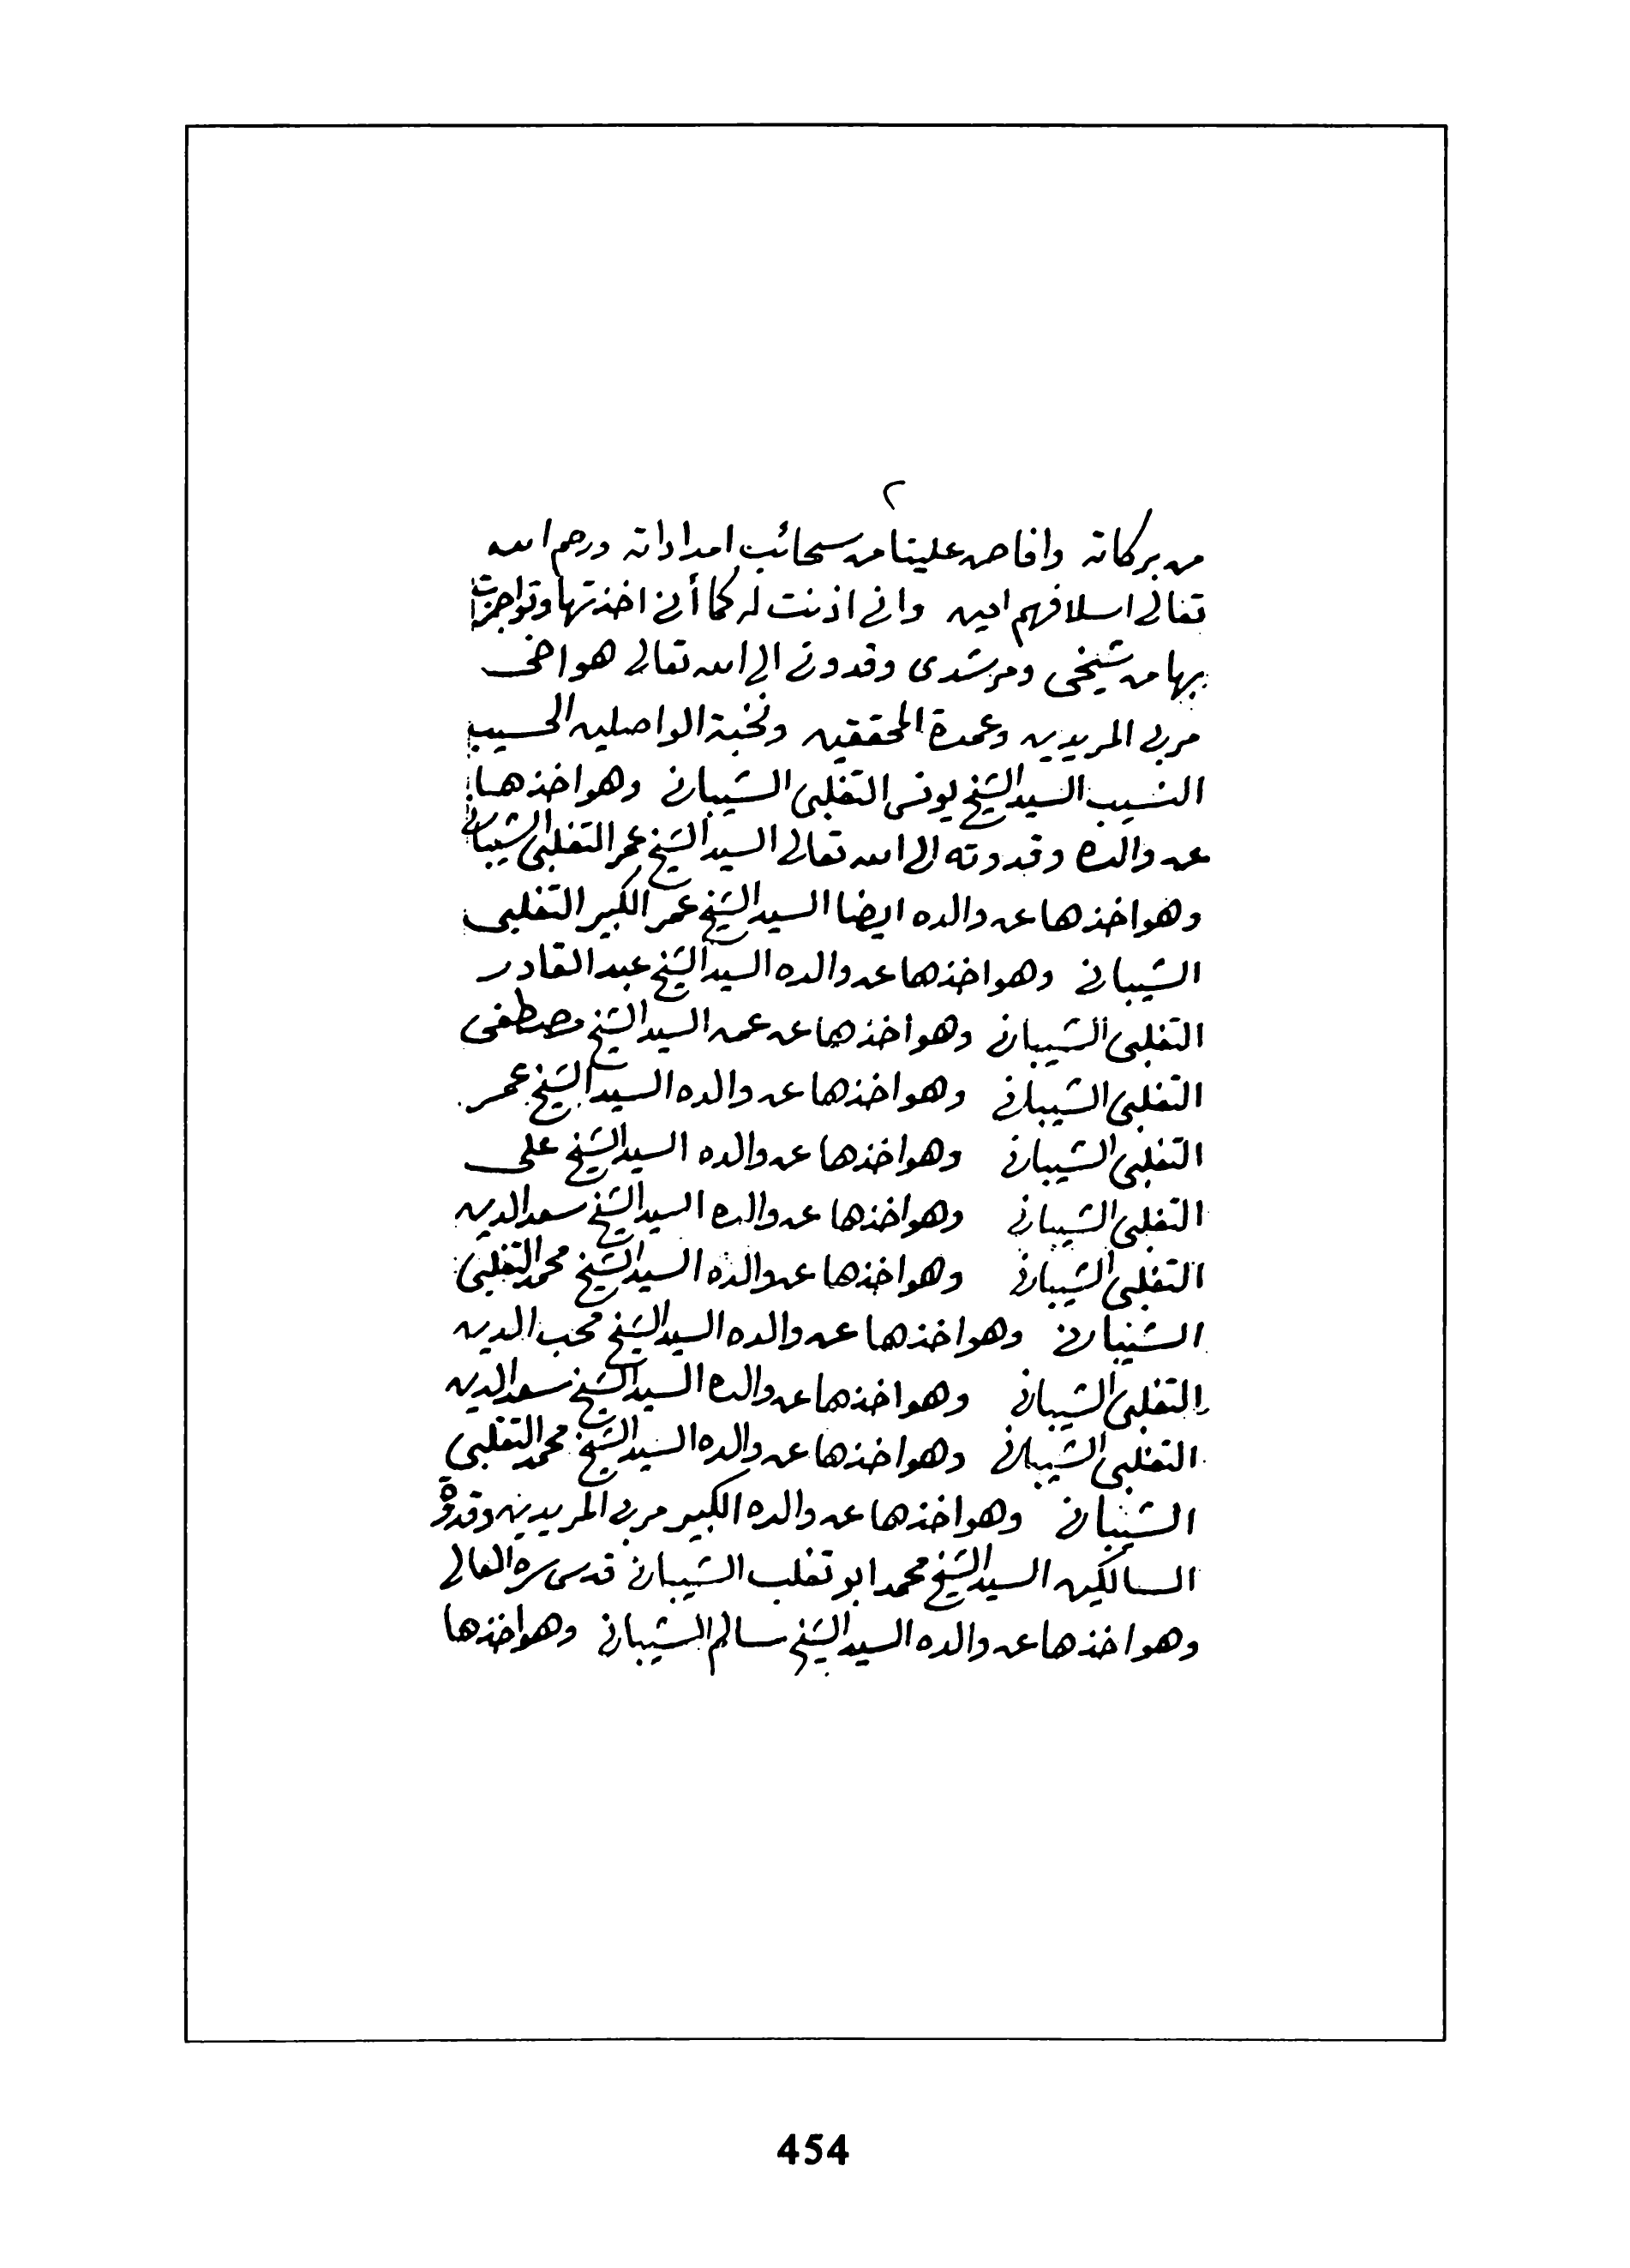 ٢
من بركاته وافاض علينا من سحائب امداداته ورحم الله
تعالى اسلافهم امين وانى اذنت له كما أنى اخذتها وتواجزت
بها من شيخى ومرشدى وقدوتى الى الله تعالى هو اخى
مربى المريدين وعمدة المحققين ونخبة الواصلين الحسيب
النسيب السيد الشيخ يونس التغلبى الشيبانى وهو اخذها
عن والده وقدوته الى الله تعالى السيد الشيخ عمر التغلبى الشيبانى
وهو اخذها عن والده ايضا السيد الشيخ عمر الكبير التغلبى
الشيبانى وهو اخذها عن والده السيد الشيخ عبد القادر
التغلبى الشيبانى وهو اخذها عن عمه السيد الشيخ مصطفى
التغلبى الشيبانى وهو اخذها عن والده السيد الشيخ عمر
التغلبى الشيبانى وهو اخذها عن والده السيد الشيخ على
التغلبى الشيبانى وهو اخذها عن والده السيد الشيخ سعد الدين
التغلبى الشيبانى وهو اخذها عن والده السيد الشيخ محمد التغلبى
الشيبانى وهو اخذها عن والده السيد الشيخ محب الدين
التغلبى الشيبانى وهو اخذها عن والده السيد الشيخ سعد الدين
التغلبى الشيبانى وهو اخذها عن والده السيد الشيخ محمد التغلبى
الشيبانى وهو اخذها عن والده الكبير مربى المريدين وقدوة
السالكين السيد الشيخ محمد ابو تغلب الشيبانى قدس سره العالى
وهو اخذها عن والده السيد الشيخ سالم الشيبانى وهو اخذها
454